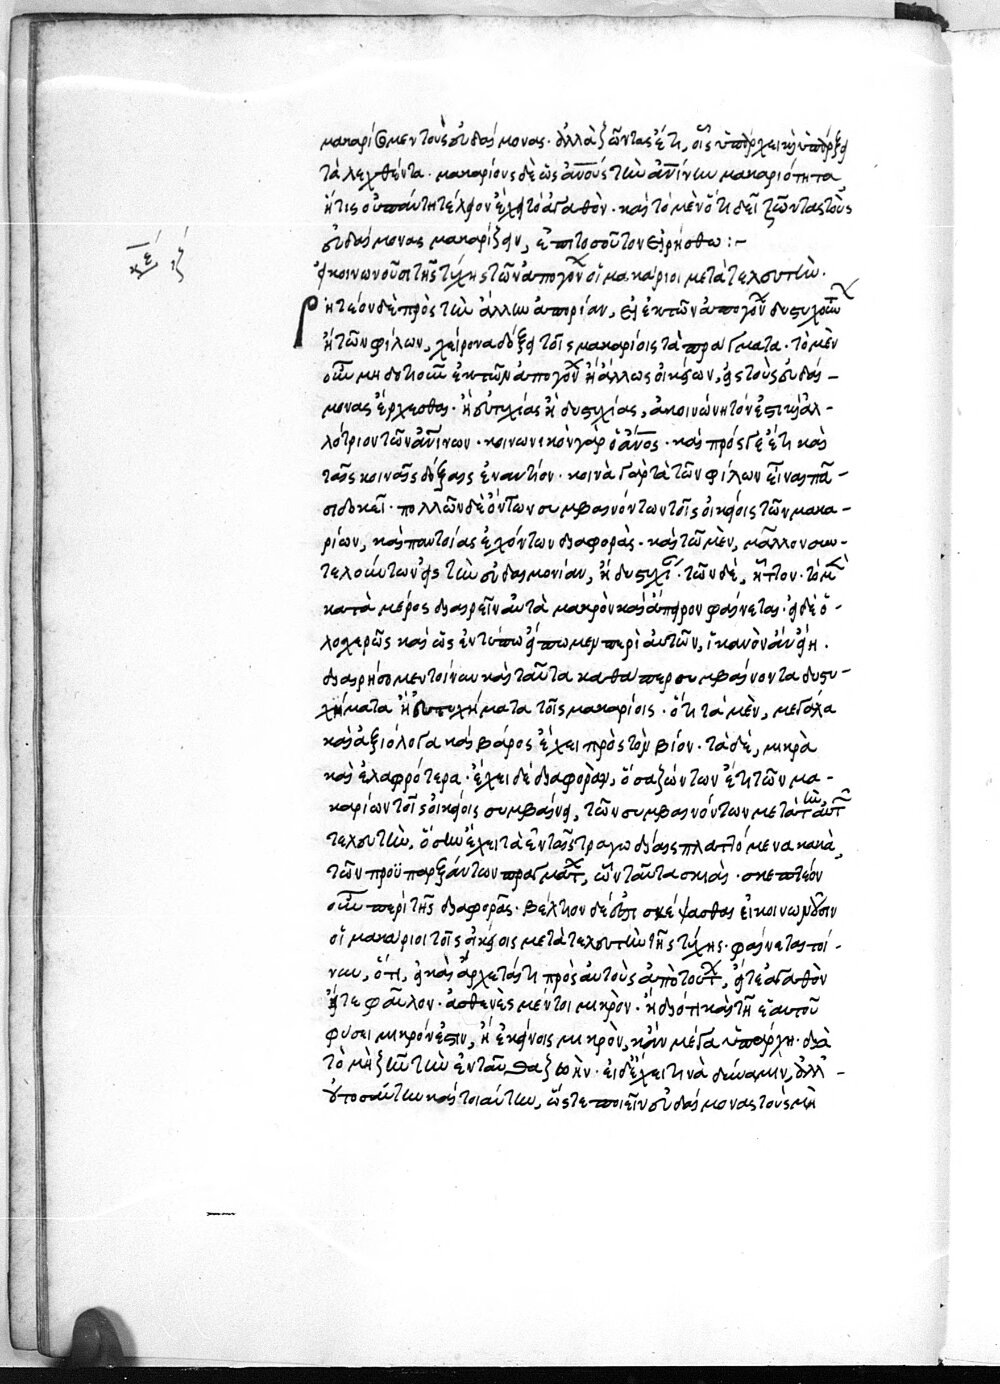 μακαρίσομεν τοὺς εὐδαίμονας· ἀλλὰ ζῶντας ἔτι, οἷς ὑπάρχει καὶ ὑπάρξει
τὰ λεχθέντα· μακαρίους δὲ ὡς ἀνοὺς τὴν ἀνίνην μακαριότητα,
ἥτις οὐ πάντη τέλειον ἔχει τὸ ἀγαθόν· καὶ τὸ μὲν ὅτι δεῖ ζῶντας τοὺς
εὐδαίμονας μακαρίζειν, ἐπὶ τοσοῦτον εἰρήσθω:-
κε ιζ
εἰ κοινωνοῦσι τῆς τύχης τῶν ἀπογόν οἱ μακάριοι μετὰ τελευτήν.
Ρητέον δὲ πρὸς τὴν ἄλλην ἀπορίαν, εἰ ἐκ τῶν ἀπογόν δυστυχούν
ἢ τῶν φίλων, χείρονα δόξει τοῖς μακαρίοις τὰ πράγματα· τὸ μὲν
οὖν μηδοτιοῦν ἐκ τῶν ἀπογόν ἢ ἄλλως οἰκείων, εἰς τοὺς εὐδαί-
μονας ἔρχεσθαι· ἢ εὐτυχίας ἢ δυστυχίας, ἀκοινώνητόν ἐστι καὶ ἀλ-
λότριον τῶν ἀνίνων· κοινωνικὸν γὰρ ὁ ἄνος· καὶ πρός γε ἔτι καὶ
ταῖς κοιναῖς δόξαις ἐναντίον· κοινὰ γὰρ τὰ τῶν φίλων εἶναι πᾶ-
σι δοκεῖ· πολλῶν δὲ ὄντων συμβαινόντων τοῖς οἰκείοις τῶν μακα-
ρίων, καὶ παντοίας ἐχόντων διαφοράς· καὶ τῶν μὲν, μᾶλλον συν-
τελούντων εἰς τὴν εὐδαιμονίαν, ἢ δυστυχί· τῶν δὲ, ἧττον· τὸ μὲν
κατὰ μέρος διαιρεῖν αὐτὰ μακρὸν καὶ ἄπειρον φαίνεται· εἰ δὲ ὁ-
λοσχερῶς καὶ ὡς ἐν τύπῳ εἴπωμεν περὶ αὐτῶν, ἱκανὸν ἂν εἴη.
διαιρήσομεν τοίνυν καὶ ταῦτα καθάπερ συμβαίνοντα δυστυ-
χήματα ἢ εὐτυχήματα τοῖς μακαρίοις· ὅτι τὰ μὲν, μεγάλα
καὶ ἀξιόλογα καὶ βάρος ἔχει πρὸς τὸν βίον· τὰ δέ, μικρὰ
καὶ ἐλαφρότερα· ἔχει δὲ διαφορὰν, ὅσα ζώντων ἔτι τῶν μα-
καρίων τοῖς οἰκείοις συμβαίνει, τῶν συμβαινόντων μετὰ τὴν αὐτῶν
τελευτήν, ὅσην ἔχει τὰ ἐν ταῖς τραγῳδίαις πλαττόμενα κακὰ,
τῶν προϋπαρξάντων πραγμάτ, ὧν ταῦτα σκιάς· σκεπτέον
οὖν περὶ τῆς διαφορᾶς· βέλτιον δέ ἐστι σκέψασθαι εἰ κοινωνοῦσιν
οἱ μακάριοι τοῖς οἰκείοις μετὰ τελευτὴν τῆς τύχης· φαίνεται τοί-
νυν, ὅτι, εἰ καὶ ἄρχεταί τι πρὸς αὐτοὺς ἀπὸ τούτ, εἴτε ἀγαθὸν
εἴτε φαῦλον· ἀσθενὲς μέντοι μικρὸν· ἢ διότι καὶ τῇ ἑαυτοῦ
φύσει μικρόν ἐστιν, ἢ ἐκείνοις μικρὸν, κἂν μέγα ὑπάρχη· διὰ
τὸ μὴ ζῶν τὴν ἐνταῦθα ζωὴν· εἰ δὲ ἔχει τινὰ δύναμιν, ἀλλ'
οὐ τοσαύτην καὶ τοιαύτην, ὥστε ποιεῖν εὐδαίμονας τοὺς μὴ